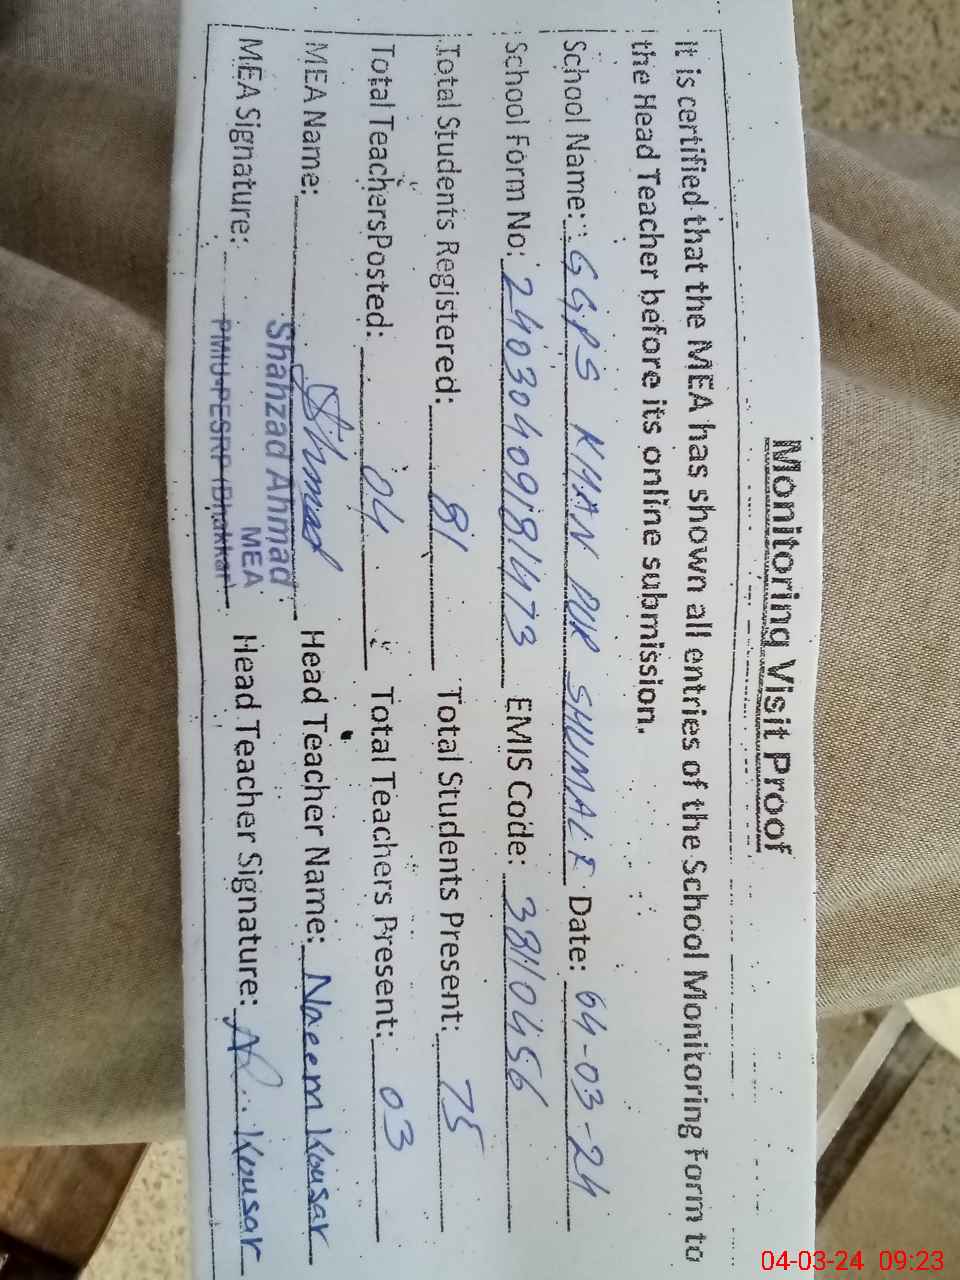 Monitoring Visit Proof
It is certified that the MEA has shown all entries of the School Monitoring Form to
the Head Teacher before its online submission.
School Name: GGPS KHAN PUR SHUMALI Date: 04-03-24
School Form No: 24030409181473 EMIS Code: 38110456
Total Students Registered: 81 Total Students Present: 75
Total TeachersPosted: 04 Total Teachers Present: 03
MEA Name: Ahmad Head Teacher Name: Naeem Kousar
Shahzad Ahmad
MEA
MEA Signature: PMIU-PESRP (Bhakkar) Head Teacher Signature: N. Kousar
04-03-24 09:23